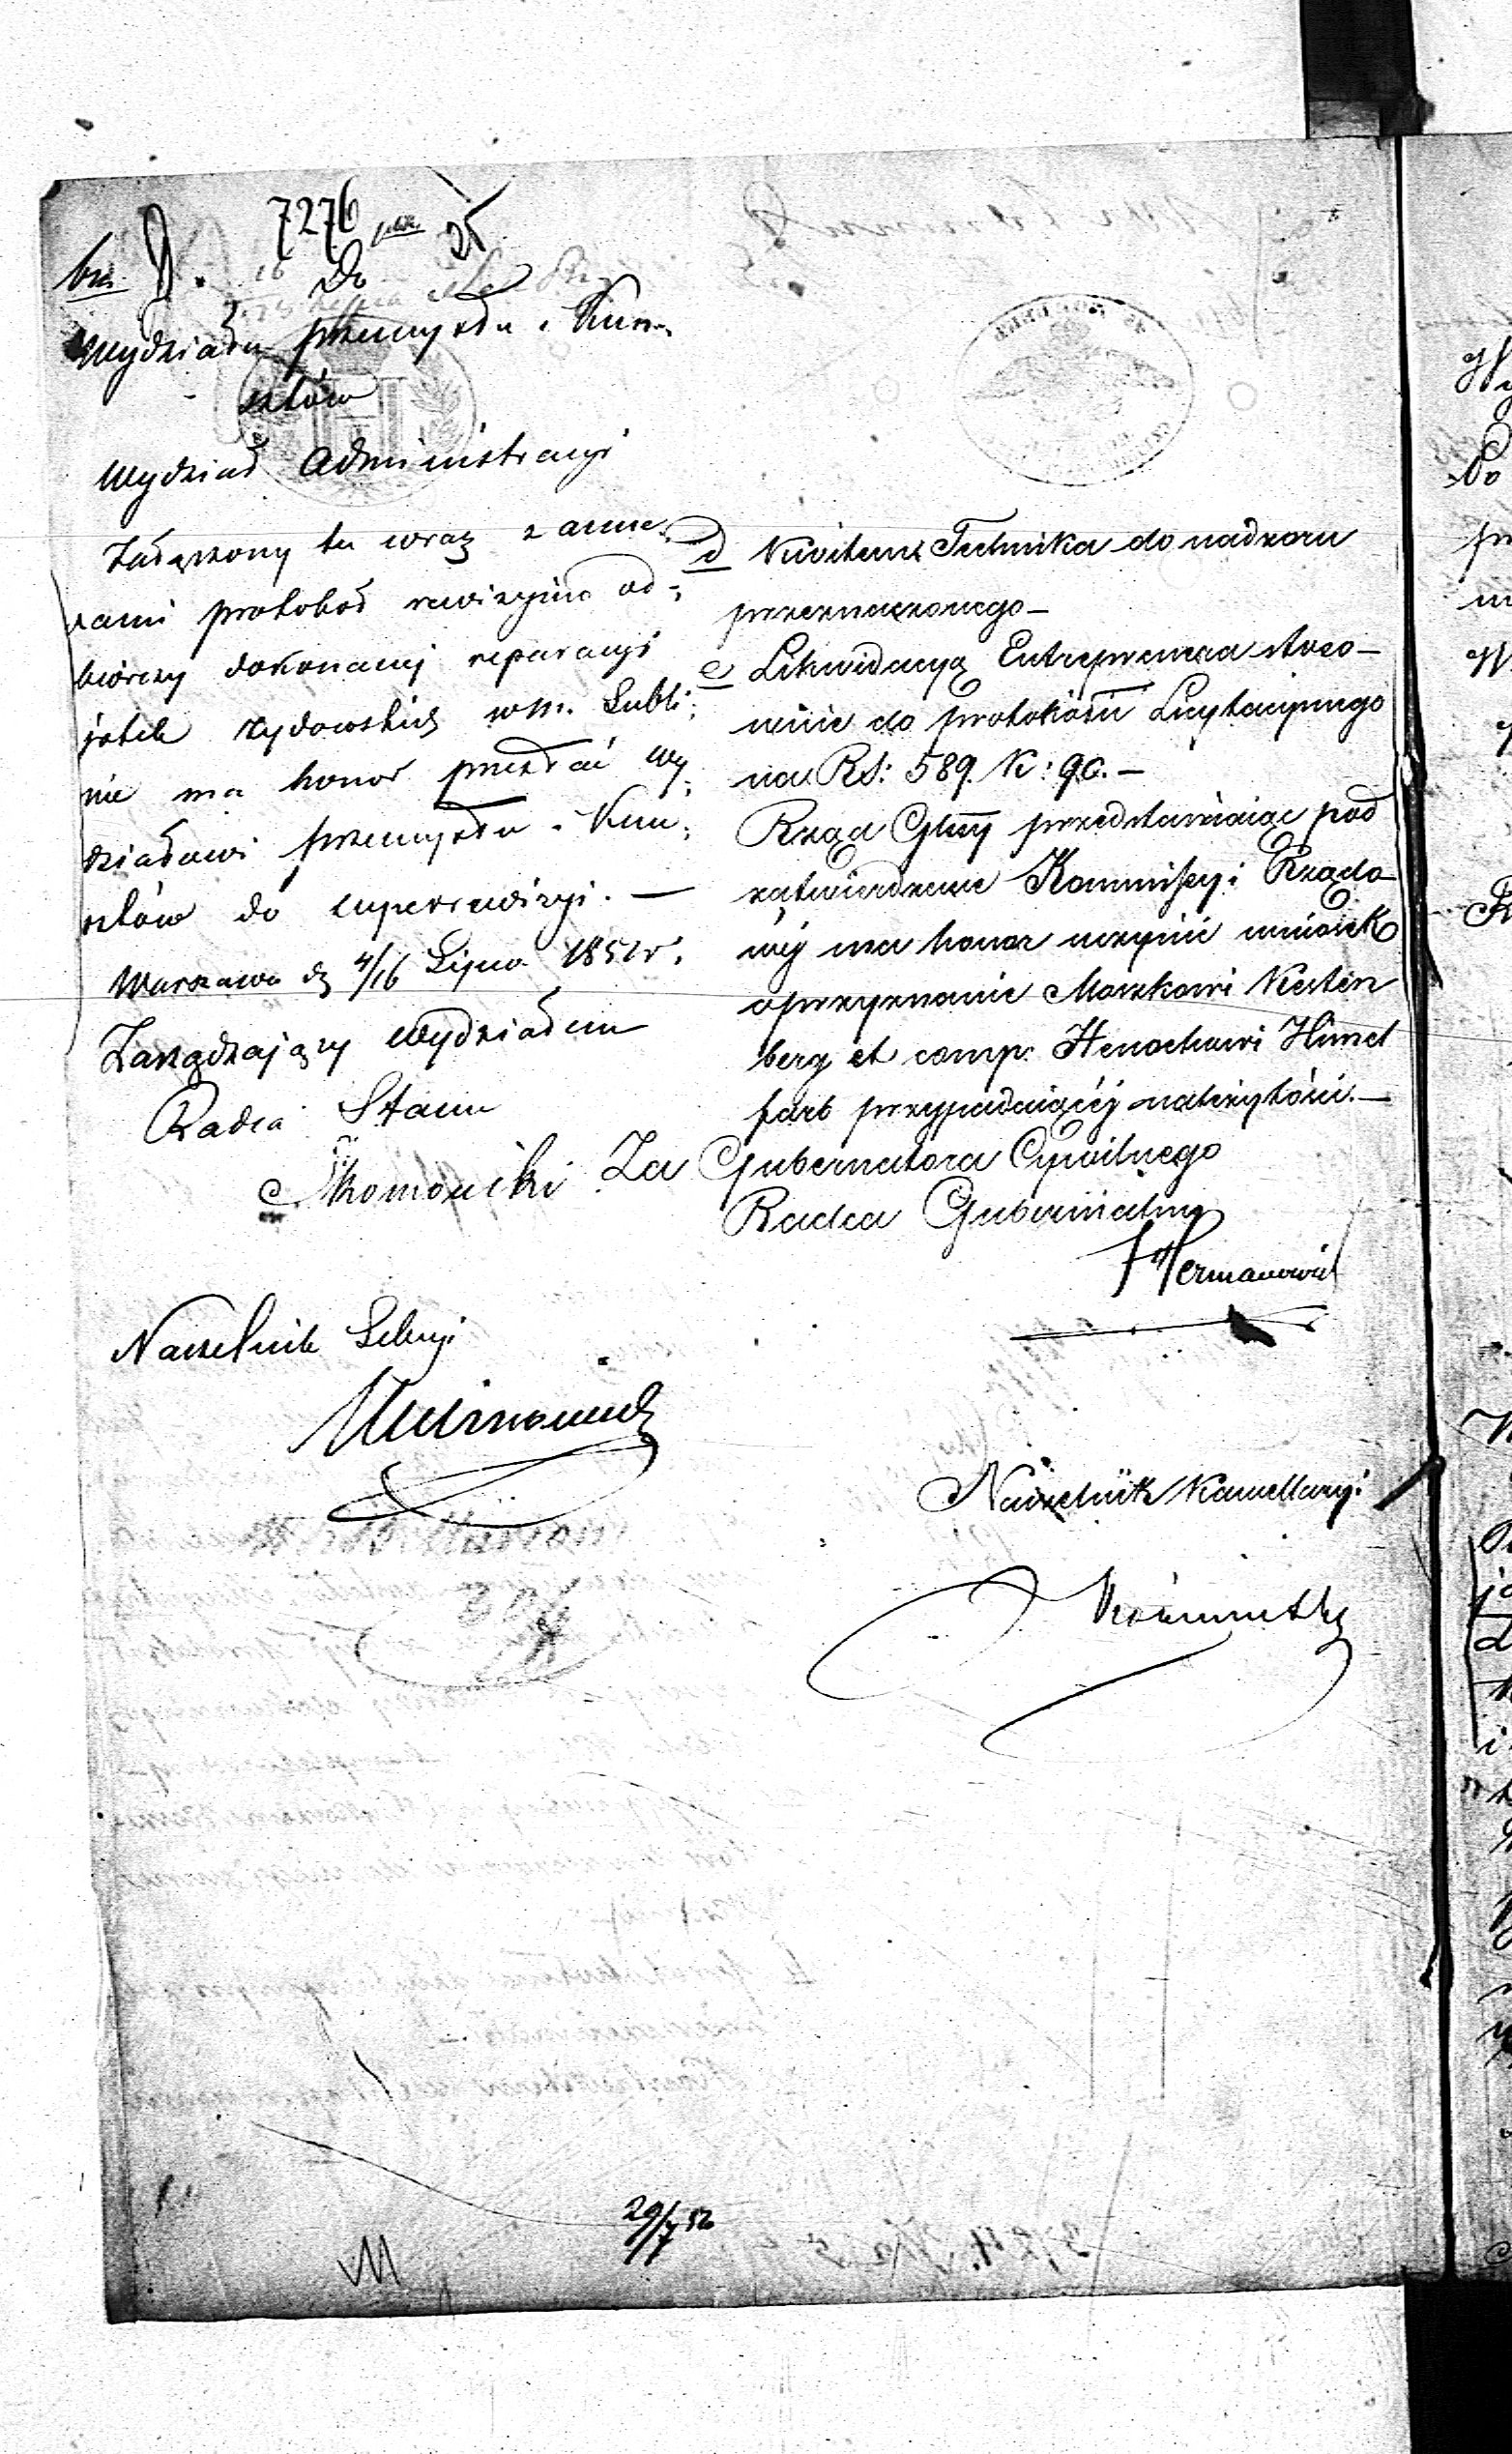 7276
Do
Wydziału przemysłu i Kun-
sztów
Wydział Administracyi
Załączony tu wraz z anne-
xami protokół rewizyino od-
biorczy dokonanej reparacyi
jatek żydowskich w m. Lubli-
nie ma honor przesłać Wy-
działowi przemysłu i Kun-
sztów do superrewizyi. —
Warszawa d. 4/16 Lipca 1852 r.
Zarządzający Wydziałem
Radca Stanu
Naczelnik Sekcyi
d Kwitem Technika do nadzoru
przeznaczonego —
e Likwidacyą Entreprenera stoso-
wnie do protokółu Licytacyjnego
na RS: 589. K: 90. —
Rząd Głny przedstawiaiąc pod
zatwierdzenie Kommissyi Rządo-
wéj ma honor uczynić wniosek
o przyznanie Moszkowi Kesten
berg et comp: Henochowi Himel
farb przypadaiącéj należytości. —
Za Gubernatora Cywilnego
Radca Gubernialny
Hermanowicz
Naczelnik Kancellaryi
29/7 52